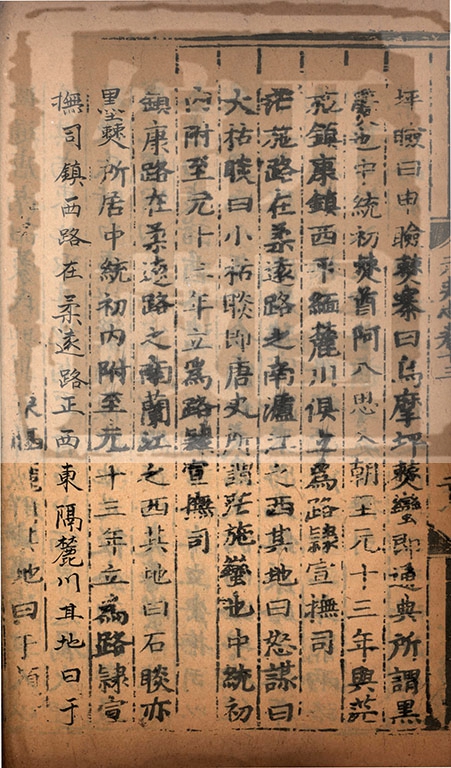 坪瞼曰申瞼僰寨曰烏摩坪僰蠻即通典所謂黑
爨也中統初僰酋阿八思入朝至元十三年與茫
施鎮康鎮西平緬麓川俱立為路隸宣撫司
茫施路在柔遠路之南瀘江之西其地曰怒謀曰
大枯睒曰小枯睒即唐史所謂茫施蠻也中統初
內附至元十三年立為路隸宣撫司
鎮康路在柔遠路之南蘭江之西其地曰石睒亦
黑僰所居中統初內附至元十三年立為路隸宣
撫司鎮西路在柔遠路正西東隔麓川其地曰于
其地曰干